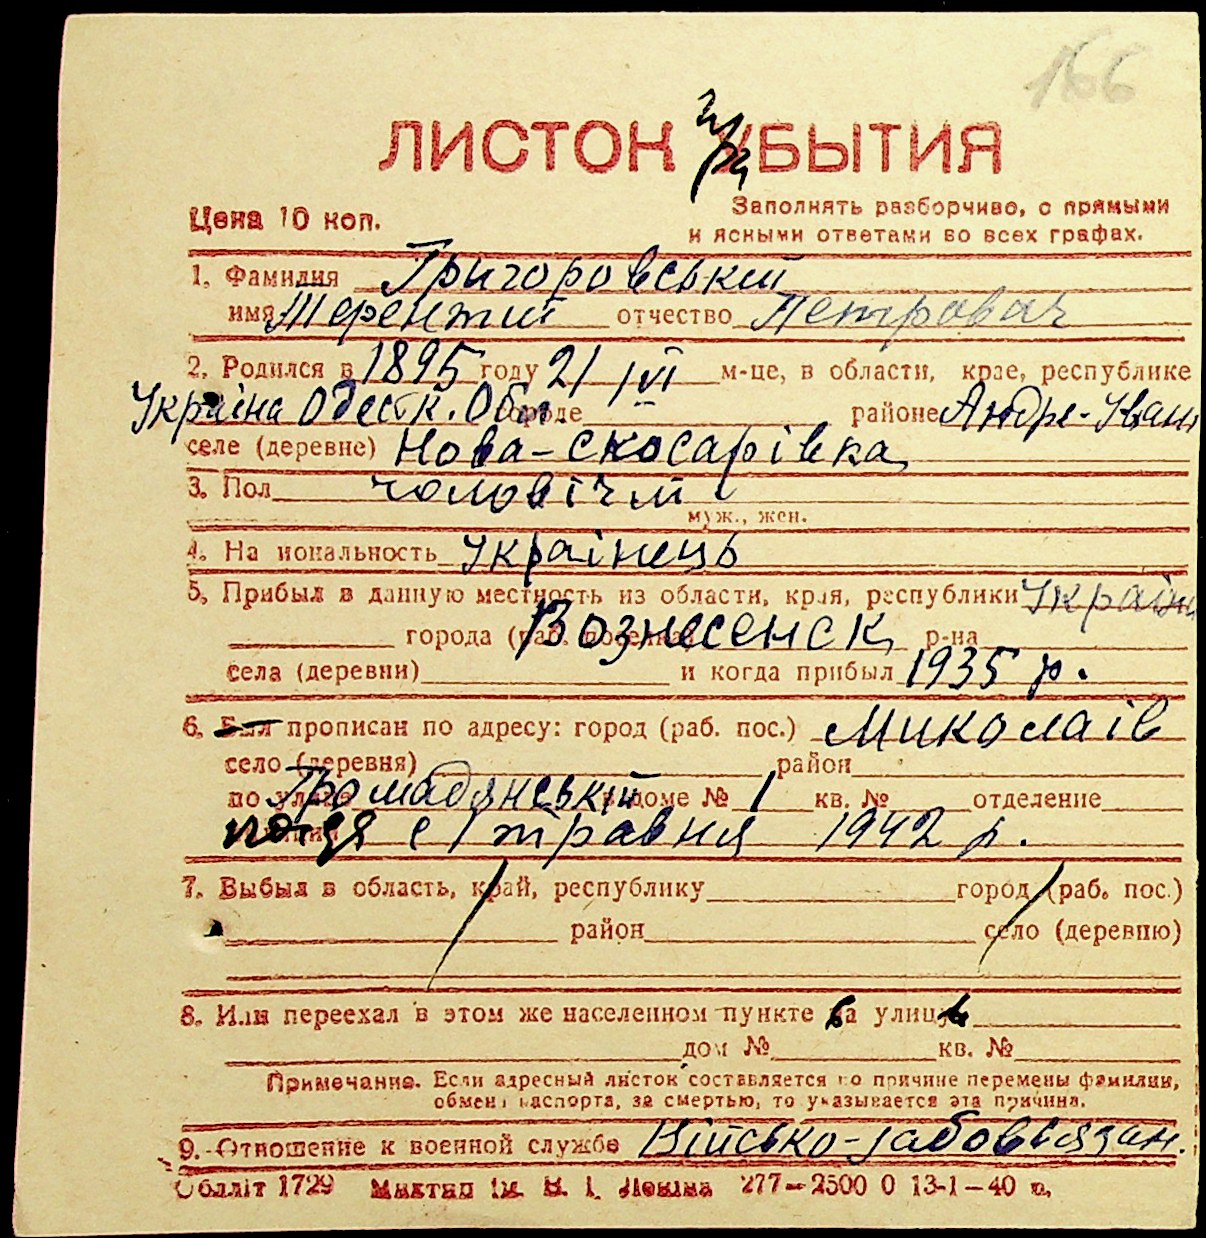 166
ЛИСТОК УБЫТИЯ
Цена 10 коп.
Заполнять разборчиво, с прямыми
и ясными ответами во всех графах.
1. Фамилия Григоровський
имя Терентий отчество Петрович
2. Родился в 1895 году 21/VI м-це, в области, крае, республике
Україна Одеськ. Обл. городе районе Андре-Іванів
селе (деревне) Нова-Скосарівка
3. Пол чоловічий
муж., жен.
4. Национальность Українець
5. Прибыл в данную местность из области, края, республики Україна
города (раб. поселка) Вознесенск р-на
села (деревни) и когда прибыл 1935 р.
6. Был прописан по адресу: город (раб. пос.) Миколаїв
село (деревня) район
по улице Громадянській в доме № 1 кв. № отделение
с 1 травня 1942 р.
7. Выбыл в область, край, республику город (раб. пос.)
район село (деревню)
8. Или переехал в этом же населенном пункте на улицу
дом № кв. №
Примечание. Если адресный листок составляется по причине перемены фамилии,
обмена паспорта, за смертью, то указывается эта причина.
9. Отношение к военной службе Військо-забовьязан.
Обллiт 1729 Миктип iм. В. I. Ленiна 277—2500 0 13-1—40 р.